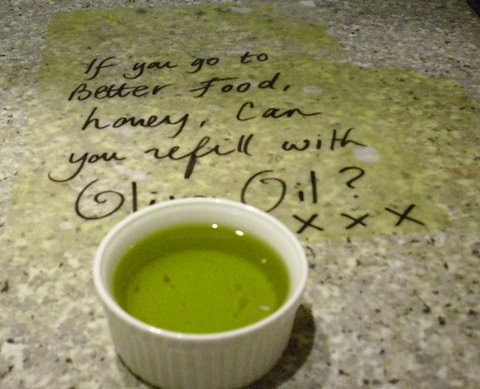 If you go to
Better Food,
honey, Can
you refill with
Olive Oil?
x x x